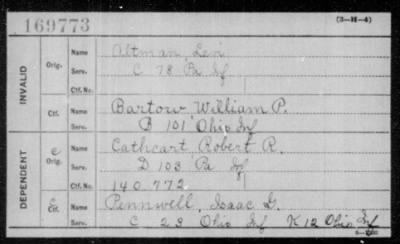 169773
(3-H-4)
INVALID
Orig.
Name Altman, Levi
Serv. C 78 Pa Inf
Ctf. No.
Ctf.
Name Bartow, William P.
Serv. B 101 Ohio Inf
DEPENDENT
C
Orig.
Name Cathcart, Robert R.
Serv. D 103 Pa Inf
Ctf. No. 140.772
C
Ctf.
Name Pennwell, Isaac G.
Serv. C 23 Ohio Inf K 12 Ohio Inf